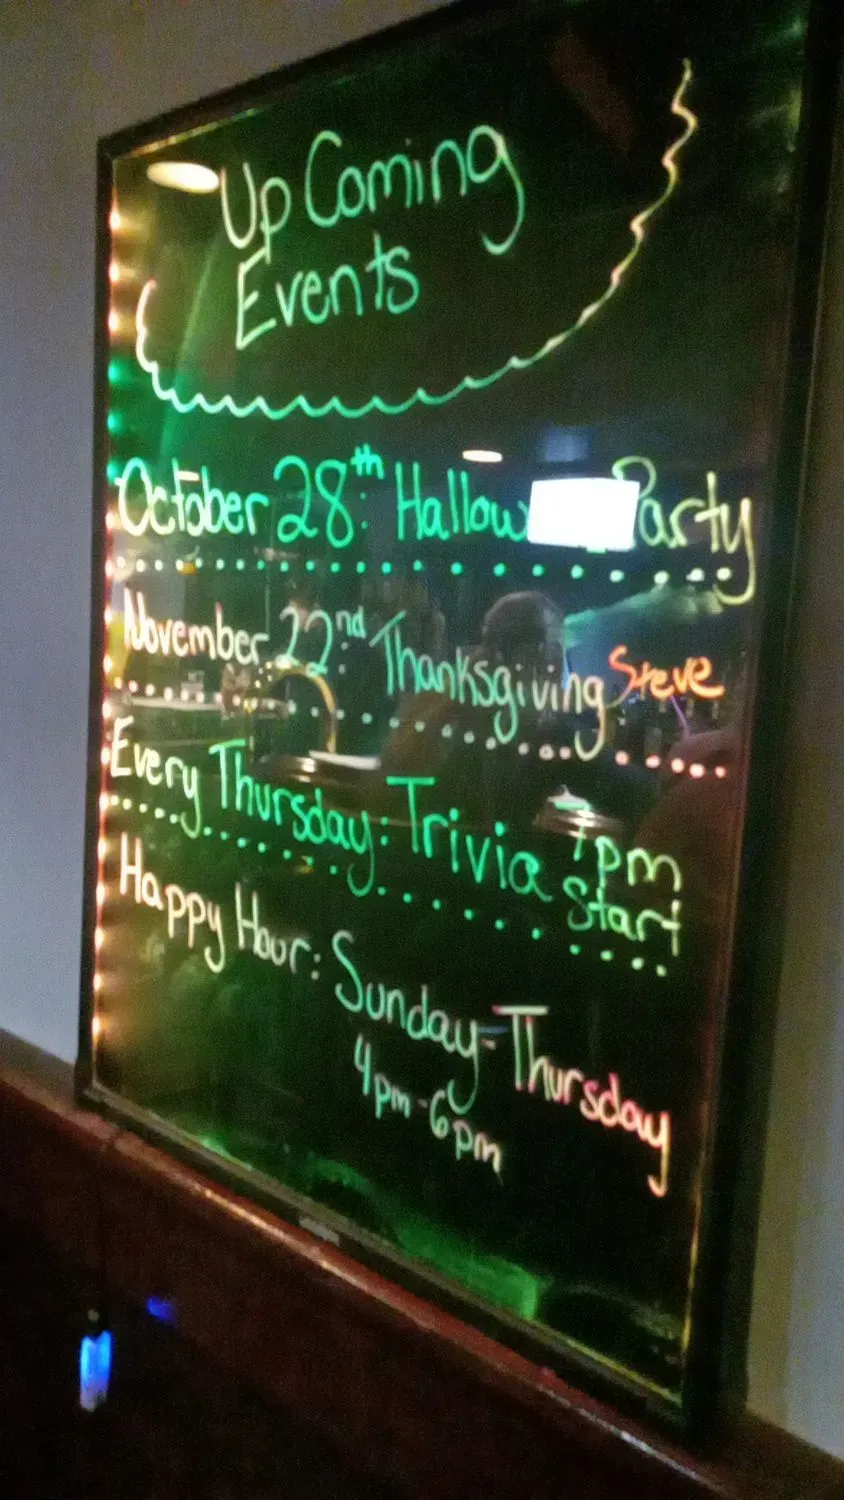 Up Coming
Events
October 28th: Hallow Party
November 22nd: Thanksgiving Steve
Every Thursday: Trivia 7pm
Start
Happy Hour: Sunday-Thursday
4pm-6pm